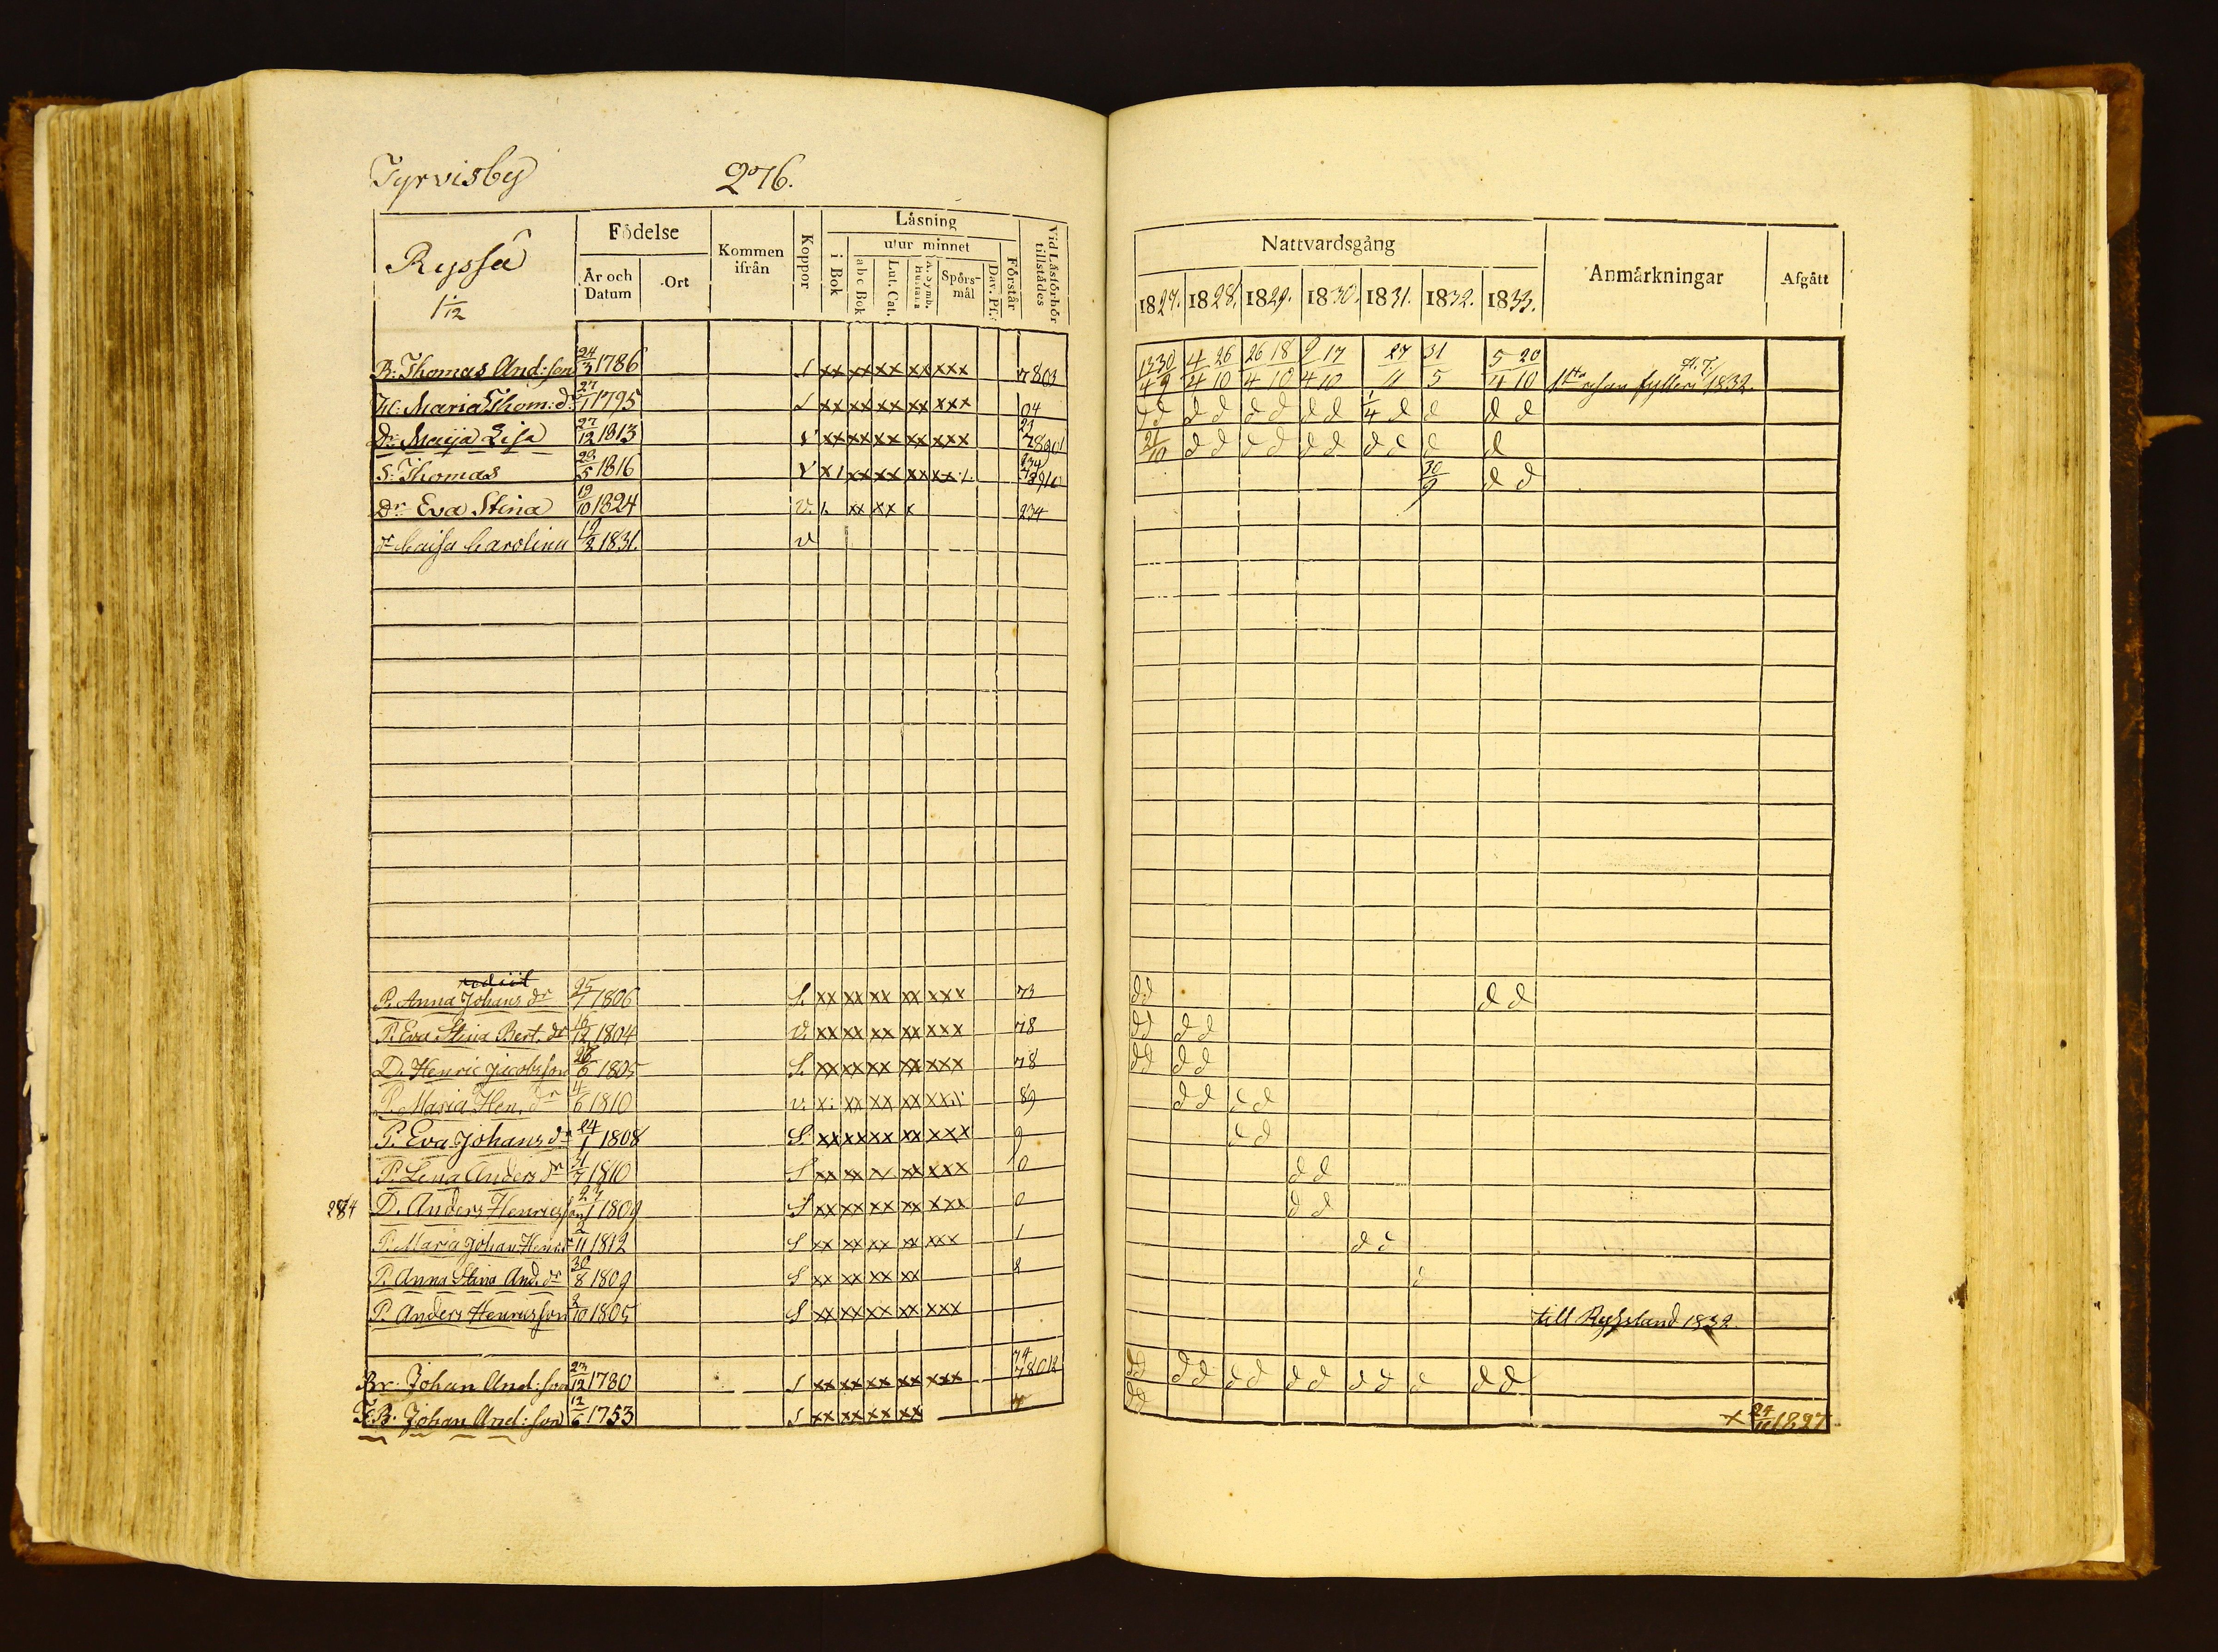 Tyrvisby 276.
Ryssä
1/12
Födelse
År och Datum
Ort
Kommen ifrån
Koppor
Läsning
i Bok
utur minnet
abc Bok
Lut. Cat.
A. Symb. Hustafla
Spörsmål
Dav. Ps.
Förstår
Vid Läsförhör tillstädes
Nattvardsgång
1827. 1828. 1829. 1830. 1831. 1832. 1833.
Anmärkningar
Afgått
B: Thomas And:son 24/3 1786 S xx xx xx xx xxx 7803 13 30 4 26 26 18 9 17 27 31 5 20
4 9 4 10 4 10 4 10 11 5 4 10 1sta resan fylleri 1832.
H: Maria Thom: dr 27/1 1795 S xx xx xx xx xxx 04 d d d d d d d d 1/4 d d d d
Dr Maija Lisa 27/12 1813 v xx xx xx xx xxx 21/10 d d d d d d d d d d
S: Thomas 28/5 1816 v x 1 xx xx xx 30/9 d d
Dr Eva Stina 19/10 1824 v. xx xx x 234
dr Caisa Carolina 19/2 1831. v
rediit
P. Anna Johans dr 25/1 1806 S. xx xx xx xx xxx 73 d d d d
P. Eva Stina Bert. dr 12 1804 v. xx xx xx xx xxx 78 d d d d
D. Henric Jacobsson 28/6 1805 S. xx xx xx xx xxx 78 d d d d
P. Maria Hen. dr 4/6 1810 v. x: xx xx xx 89 d d d d
P. Eva Johans dr 24/1 1808 S. xx xx xx xx xxx 9 d d
P. Lena Anders dr 7 1810 S xx xx xx xxx 0 d d
284 D. Anders Henricsson 27/1 1809 S xx xx xx xx xxx 0 d d
P. Maria Johan Henr dr 2/11 1812 S xx xx xx xx xxx 1 d d
P. Anna Stina And. dr 30/8 1809 S xx xx xx xx 2 d
P. Anders Henricsson 2/10 1805 S xx xx xx xx xxx till Ryssland 1832.
Br. Johan And:son 23/12 1780 S xx xx xx xx xxx d d d d d d d d d d d d d
F.B. Johan And:son 12/6 1753 S xx xx xx xx 7 d d x 24/11 1827